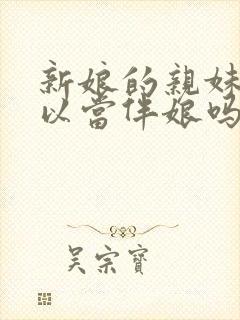 新娘的親妹
以當伴娘嗎
吴宗寶